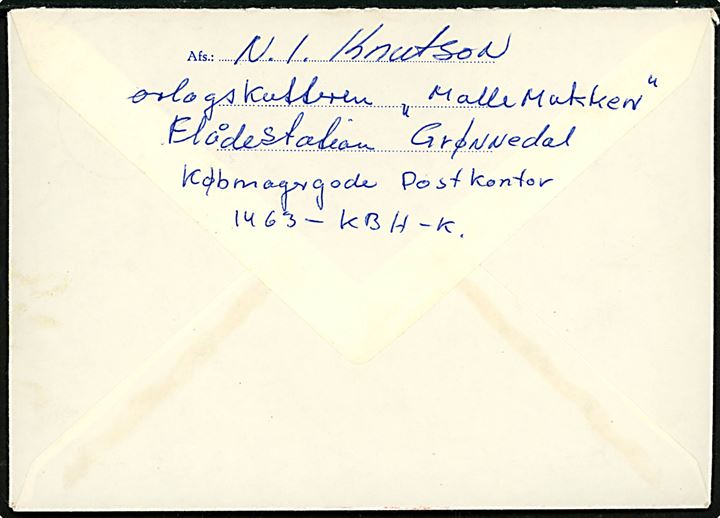 Afs.: N. I. Knutson
orlogskutteren „Mallemukken"
Flådestation Grønnedal
Købmagergade Postkontor
1463 - KBH - K.